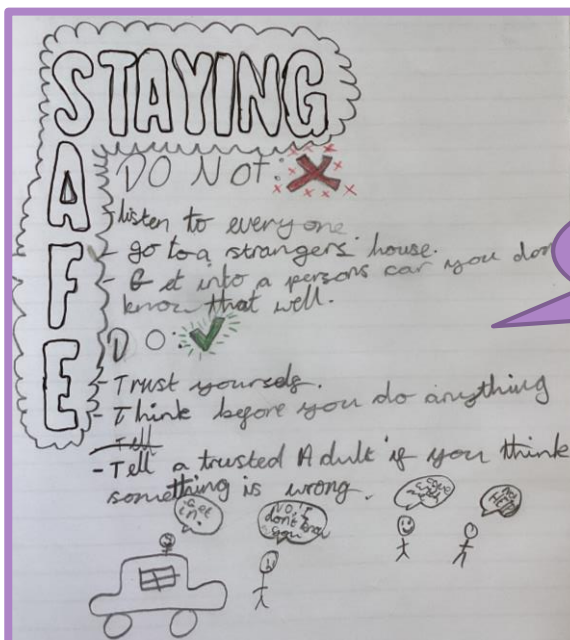 STAYING
SAFE
DO NOT:
- listen to everyone
- go to a strangers' house.
- Get into a persons car you don
know that well.
DO:
- Trust yourself.
- Think before you do anything
Tell
- Tell a trusted Adult if you think
something is wrong.
Get
in.
NO, I
don't know
you